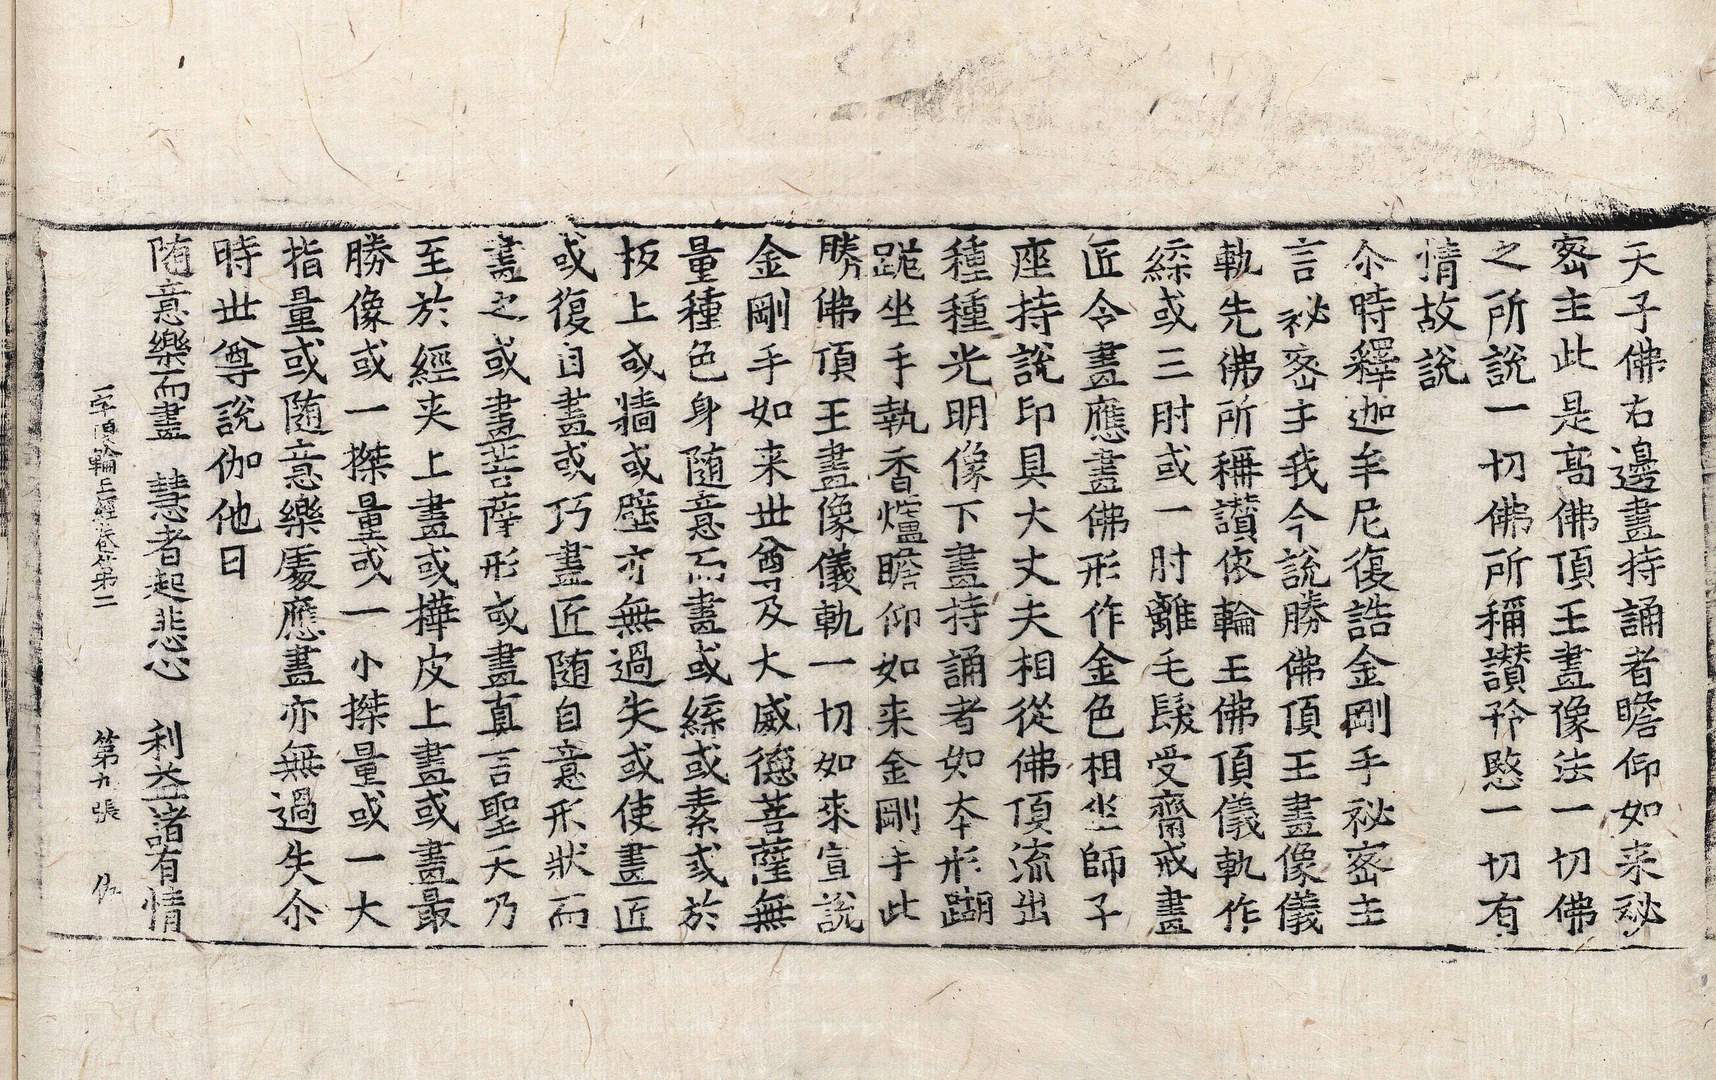 天子佛右邊畫持誦者瞻仰如来祕
密主此是高佛頂王畫像法一切佛
之所說一切佛所稱讃矜愍一切有
情故說
尒時釋迦牟尼復誥金剛手祕密主
言祕密主我今說勝佛頂王畫像儀
軌先佛所稱讃依輪王佛頂儀軌作
緂或三肘或一肘離毛髮受齋戒畫
匠令畫應畫佛形作金色相坐師子
座持說印具大丈夫相從佛頂流出
種種光明像下畫持誦者如本形蹦
跪坐手執香爐瞻仰如来金剛手此
勝佛頂王畫像儀軌一切如來宣說
金剛手如来世尊及大威德菩薩無
量種色身随意而畫或緂或素或於
板上或牆或壁亦無過失或使畫匠
或復自畫或巧畫匠随自意形狀而
畫之或畫菩薩形或畫真言聖天乃
至於經夾上畫或樺皮上畫或畫最
勝像或一搩量或一小搩量或一大
指量或随意樂處應畫亦無過失尒
時世尊說伽他曰
随意樂而畫　慧者起悲心　利益諸有情
一字頂輪王經卷第二　第九張　伤